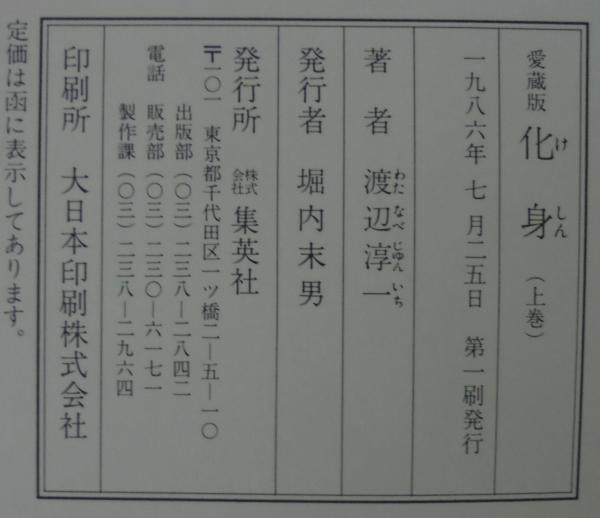 愛蔵版 化身 (上巻)
けしん
一九八六年 七月二五日 第一刷発行
著者 渡辺淳一
わたなべじゅんいち
発行者 堀内末男
発行所 株式会社 集英社
〒一〇一 東京都千代田区一ツ橋二―五―一〇
出版部 (〇三) 二三八―二八四二
電話 販売部 (〇三) 二三〇―六一七一
製作課 (〇三) 二三八―二九六四
印刷所 大日本印刷株式会社
定価は函に表示してあります。